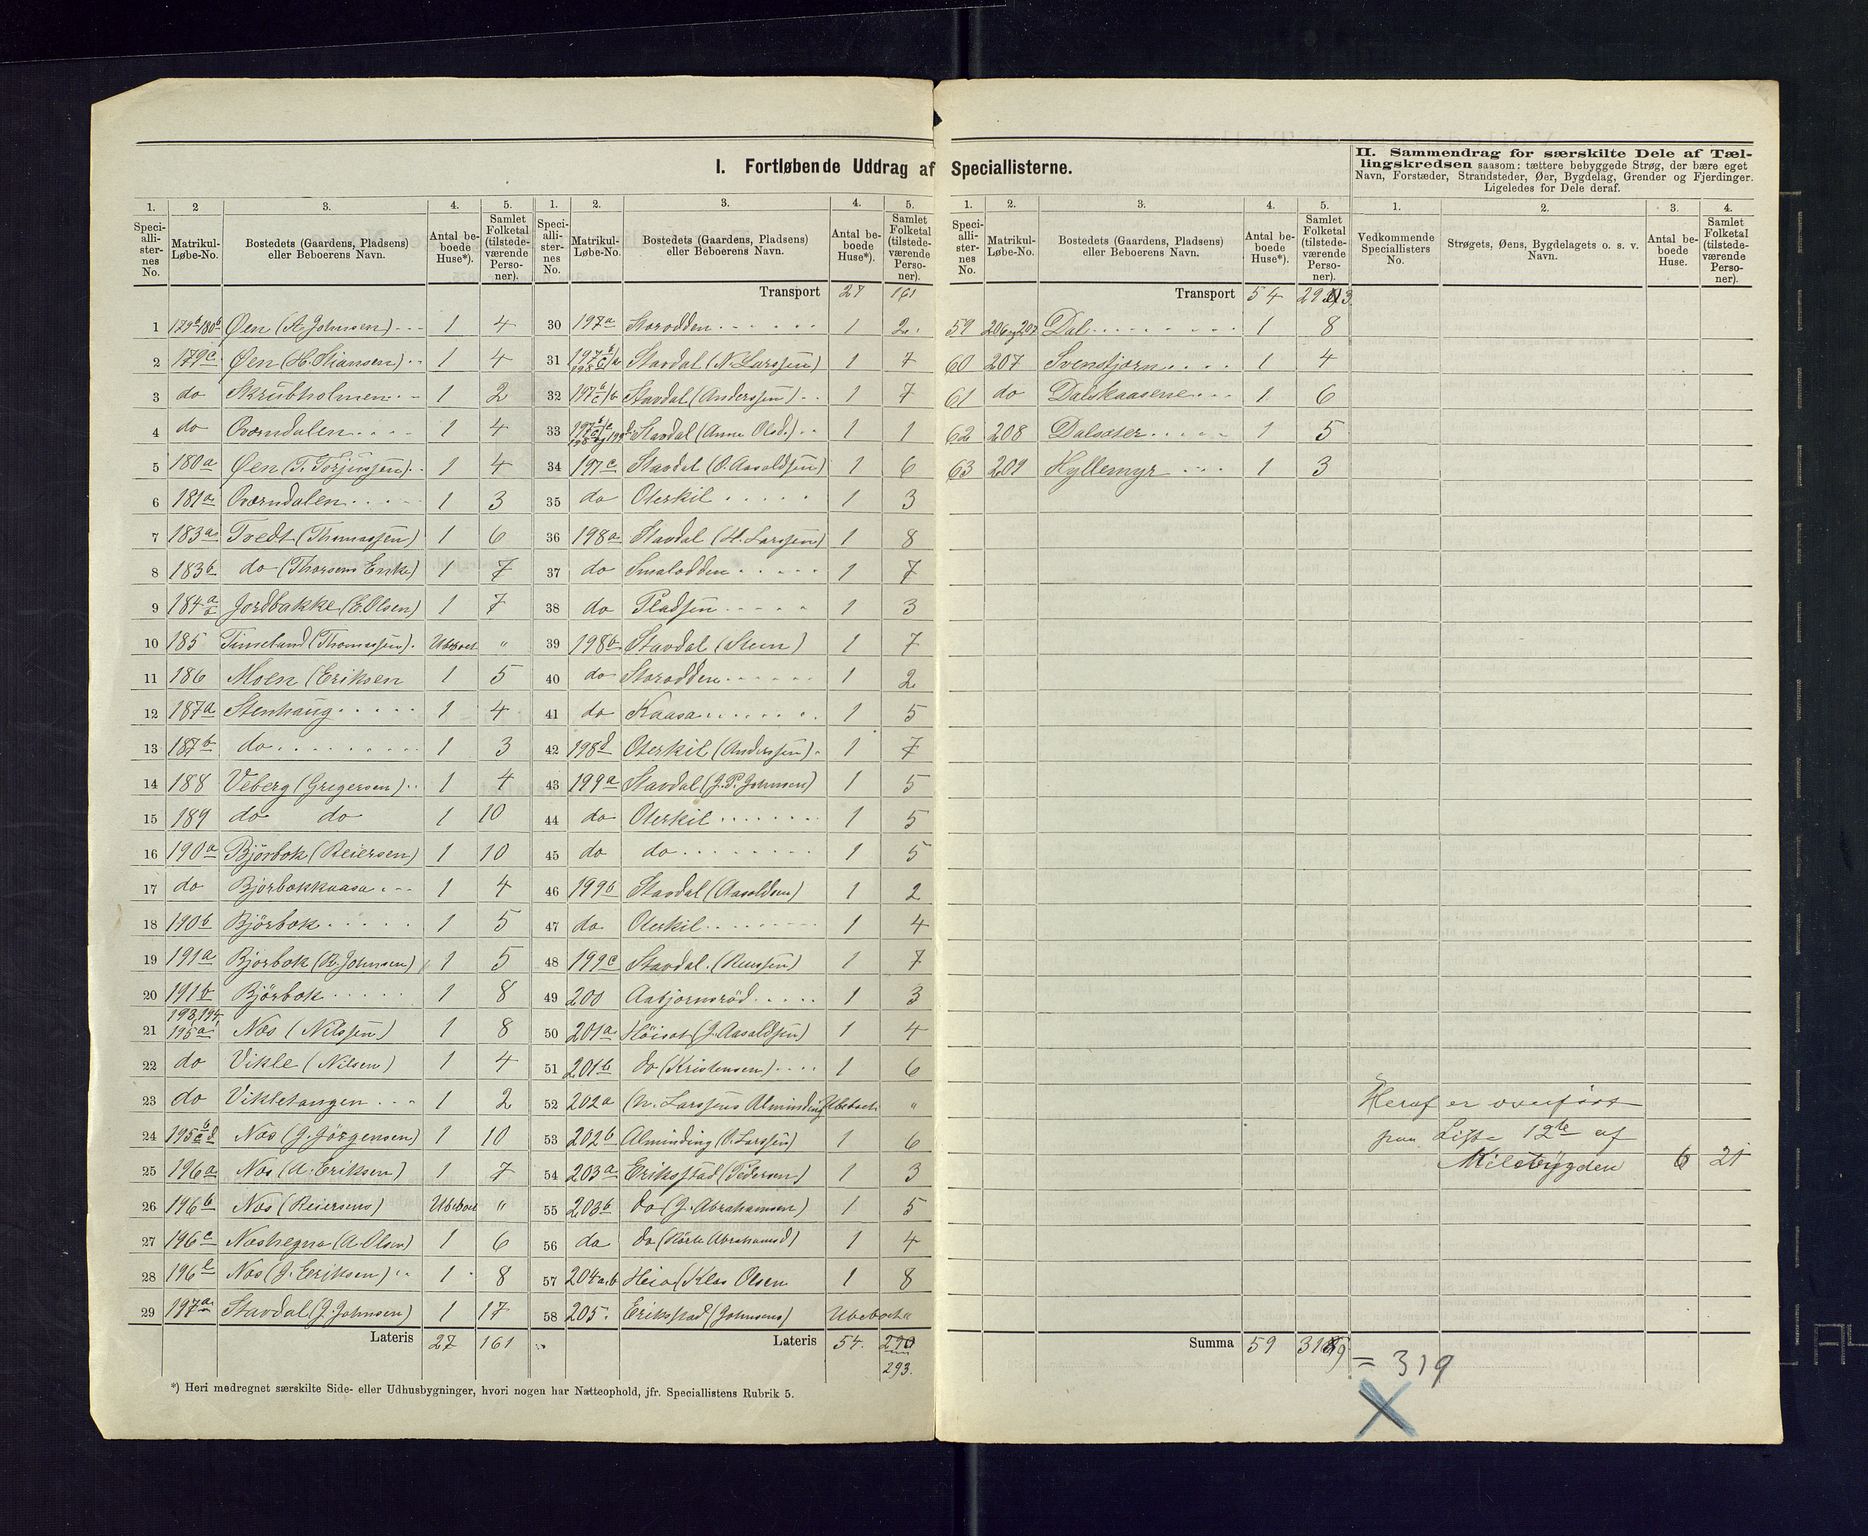 I. Fortløbende Uddrag af Speciallisterne.
II. Sammendrag for særskilte Dele af Tæl-
lingskredsen saasom: tættere bebyggede Strøg, der bære eget
Navn, Forstæder, Strandsteder, Øer, Bygdelag, Grender og Fjerdinger.
Ligeledes for Dele deraf.
1. 2 3. 4. 5.
Speci-allister-nes No. Matrikul-Løbe-No. Bostedets (Gaardens, Pladsens) eller Beboerens Navn. Antal beboede Huse*). Samlet Folketal (tilstedeværende Personer).
1 179b/180b Øen (A. Johnsen) 1 4
2 179c Øen (H. Stiansen) 1 4
3 do Skrubholmen 1 2
4 do Oværndalen 1 4
5 180a Øen (T. Torjussen) 1 4
6 181a Oværndalen 1 3
7 183a Tvedt (Thomassen) 1 6
8 183b do (Thorsens Enke) 1 7
9 184a Jordbakke (E. Olsen) 1 7
10 185 Timeland (Thomassen) Ubeboet "
11 186 Moen (Eriksen 1 5
12 187a Stenhaug 1 4
13 187b do 1 3
14 188 Veberg (Gregersen) 1 4
15 189 do do 1 10
16 190a Bjørbok (Reiersen) 1 10
17 do Bjørbokkaasa 1 4
18 190b Bjørbok 1 5
19 191a Bjørbok (R. Johnsen) 1 5
20 191b Bjørbok 1 8
21 193,194, 195a Næs (Nilssen) 1 8
22 do Vikle (Nilsen) 1 4
23 do Vikletangen 1 2
24 195bcd Næs (J. Jørgensen) 1 10
25 196a Næs (A. Eriksen) 1 7
26 196b Næs (Reiersens) Ubeboet "
27 196c Næshegna (A. Olsen) 1 6
28 196e Næs (J. Eriksen) 1 8
29 197a Stavdal (J. Johnsen) 1 17
Lateris 27 161
*) Heri medregnet særskilte Side- eller Udhusbygninger, hvori nogen har Natteophold, jfr. Speciallistens Rubrik 5.
1. 2. 3. 4. 5.
Speci-allister-nes No. Matrikul-Løbe-No. Bostedets (Gaardens, Pladsens) eller Beboerens Navn. Antal beboede Huse*). Samlet Folketal (tilstedeværende Personer).
Transport 27 161
30 197a Storodden 1 2
31 Stavdal (N. Larssen) 1 7
32 Stavdal (Anderssen) 1 7
33 Stavdal (Anne Olsd.) 1 1
34 197c Stavdal (O. Aasoldsen) 1 6
35 do Oterkil 1 3
36 198a Stavdal (H. Larssen) 1 8
37 do Smalodden 1 7
38 do Pladsen 1 3
39 198b Stavdal (Steen) 1 7
40 do Storodden 1 2
41 do Kaasa 1 5
42 198d Oterkil (Anderssen) 1 7
43 199a Stavdal (J. P. Johnsen) 1 5
44 do Oterkil 1 5
45 do do 1 5
46 199b Stavdal (Aasoldsen) 1 2
47 do Oterkil 1 4
48 199c Stavdal 1 7
49 200 Asbjørnsrød 1 3
50 201a (J. Aasoldsen) 1 4
51 201b do (Kristensen) 1 6
52 202a (N. Larssens Alminding) Ubeboet "
53 202b Alminding (O. Larssen) 1 6
54 203a Eriksstad (Pedersen) 1 3
55 203b do (J. Abrahamsen) 1 5
56 do do (Abrahamsd) 1 4
57 204a,b Heia (Klas Olsen 1 8
58 205. Eriksstad (Johnsens) Ubeboet "
Lateris 54. 290
293.
1. 2. 3. 4. 5.
Speci-allister-nes No. Matrikul-Løbe-No. Bostedets (Gaardens, Pladsens) eller Beboerens Navn. Antal beboede Huse*). Samlet Folketal (tilstedeværende Personer).
Transport 54 293
59 206og207 Dal 1 8
60 207 Svenstjørn 1 4
61 do Dalskaasene 1 6
62 208 Dalsæter 1 5
63 209 Hyllemyr 1 3
Summa 59 319
= 319
1. 2. 3. 4.
Vedkommende Speciallisters No. Strøgets, Øens, Bygdelagets o. s. v. Navn. Antal beboede Huse. Samlet Folketal (tilstedeværende Personer).
Heraf er overført
paa Liste 12te af
Milebygden 6 21